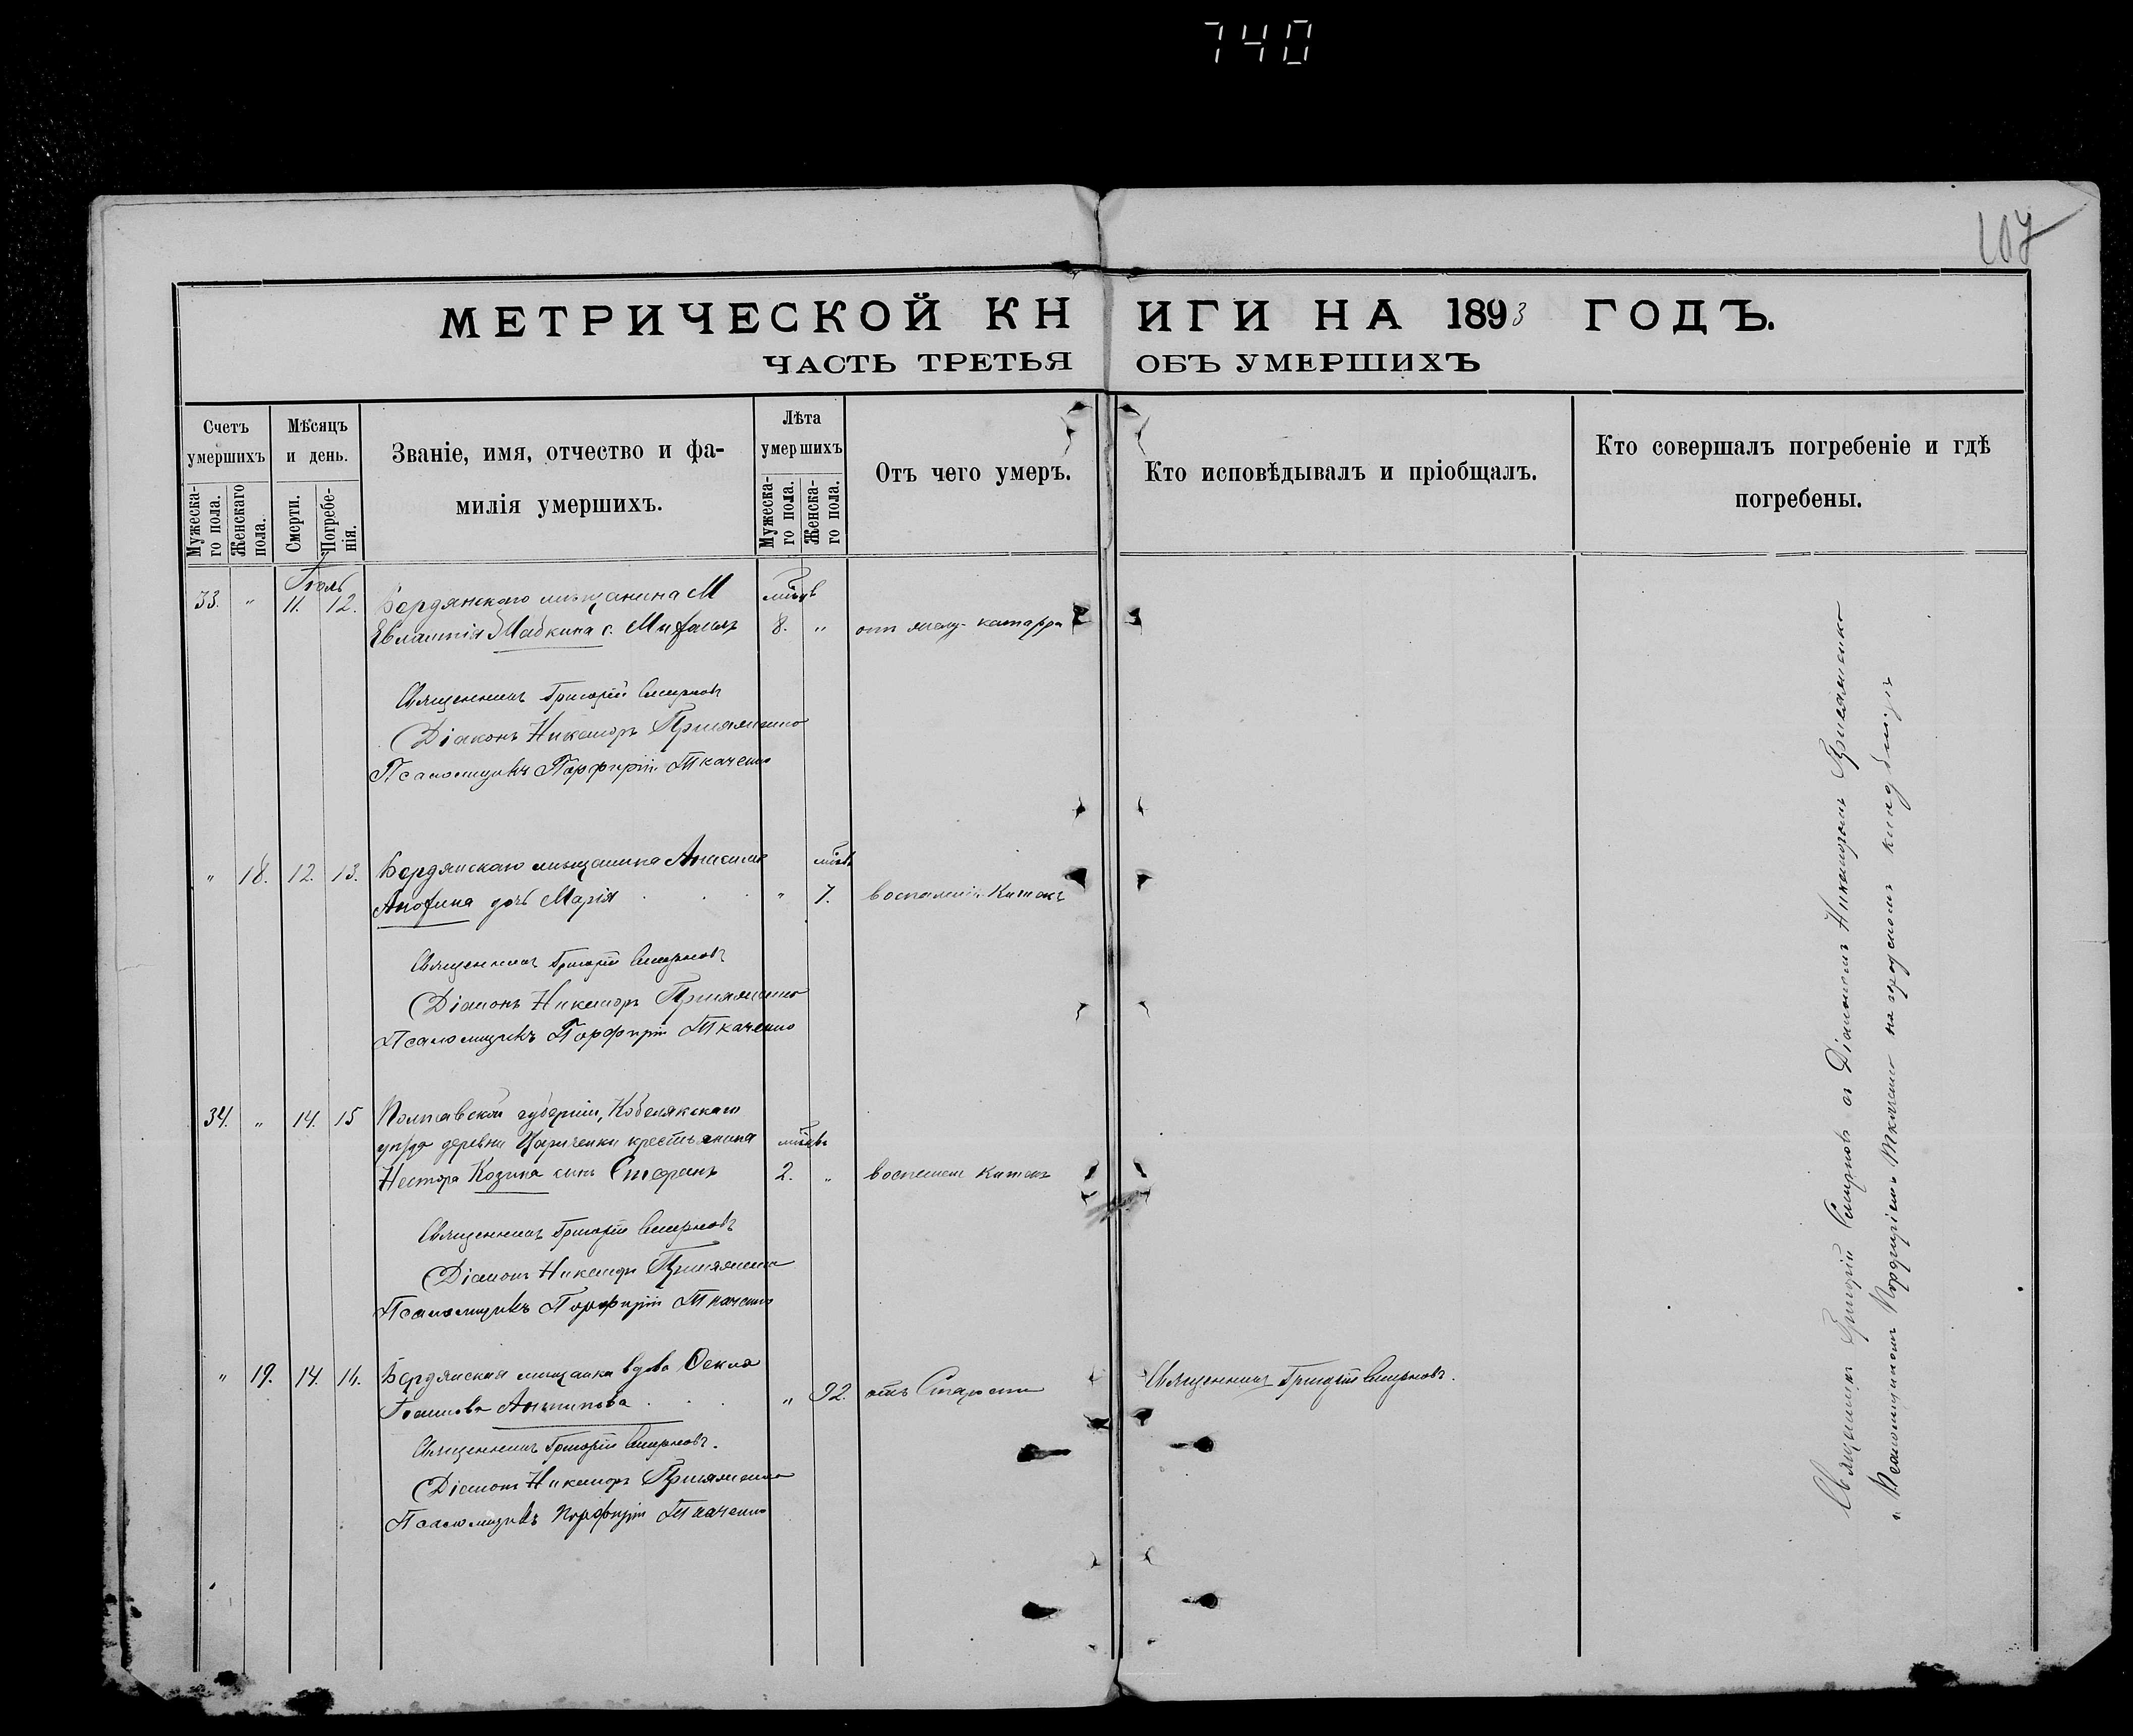 740
107
МЕТРИЧЕСКОЙ КНИГИ НА 1893 ГОДЪ.
ЧАСТЬ ТРЕТЬЯ ОБЪ УМЕРШИХЪ
Счетъ умершихъ
Мужескаго пола.
Женскаго пола.
Мѣсяцъ и день.
Смерти.
Погребенія.
Званіе, имя, отчество и фамилія умершихъ.
Лѣта умершихъ
Мужескаго пола.
Женскаго пола.
Отъ чего умеръ.
Кто исповѣдывалъ и пріобщалъ.
Кто совершалъ погребеніе и гдѣ погребены.
Іюль
33. " 11. 12. Бердянскаго мѣщанина
Евлампія с. 8. " отъ катарра
Священникъ Григорій Смирновъ
Діаконъ Никаноръ
Псаломщикъ Порфирій Ткаченко
" 18. 12. 13. Бердянскаго мѣщанина
дочь Марія " 7. воспаленія Кишекъ
Священникъ Григорій Смирновъ
Діаконъ Никаноръ
Псаломщикъ Порфирій Ткаченко
34. " 14. 15 Полтавской губерніи, Кобелякскаго
уѣзда деревни Царичанки крестьянина
Нестора Козина сынъ Стефанъ 2. " кишекъ
Священникъ Григорій Смирновъ
Діаконъ Никаноръ
Псаломщикъ Порфирій Ткаченко
" 19. 14. 16. Бердянская мѣщанка вдова Ѳекла
" 92. отъ Старости
Священникъ Григорій Смирновъ.
Священникъ Григорій Смирновъ.
Діаконъ Никаноръ
Псаломщикъ Порфирій Ткаченко
Священникъ Григорій Смирновъ съ Діакономъ Никаноромъ
и Псаломщикомъ Порфиріемъ Ткаченко на городскомъ кладбищѣ